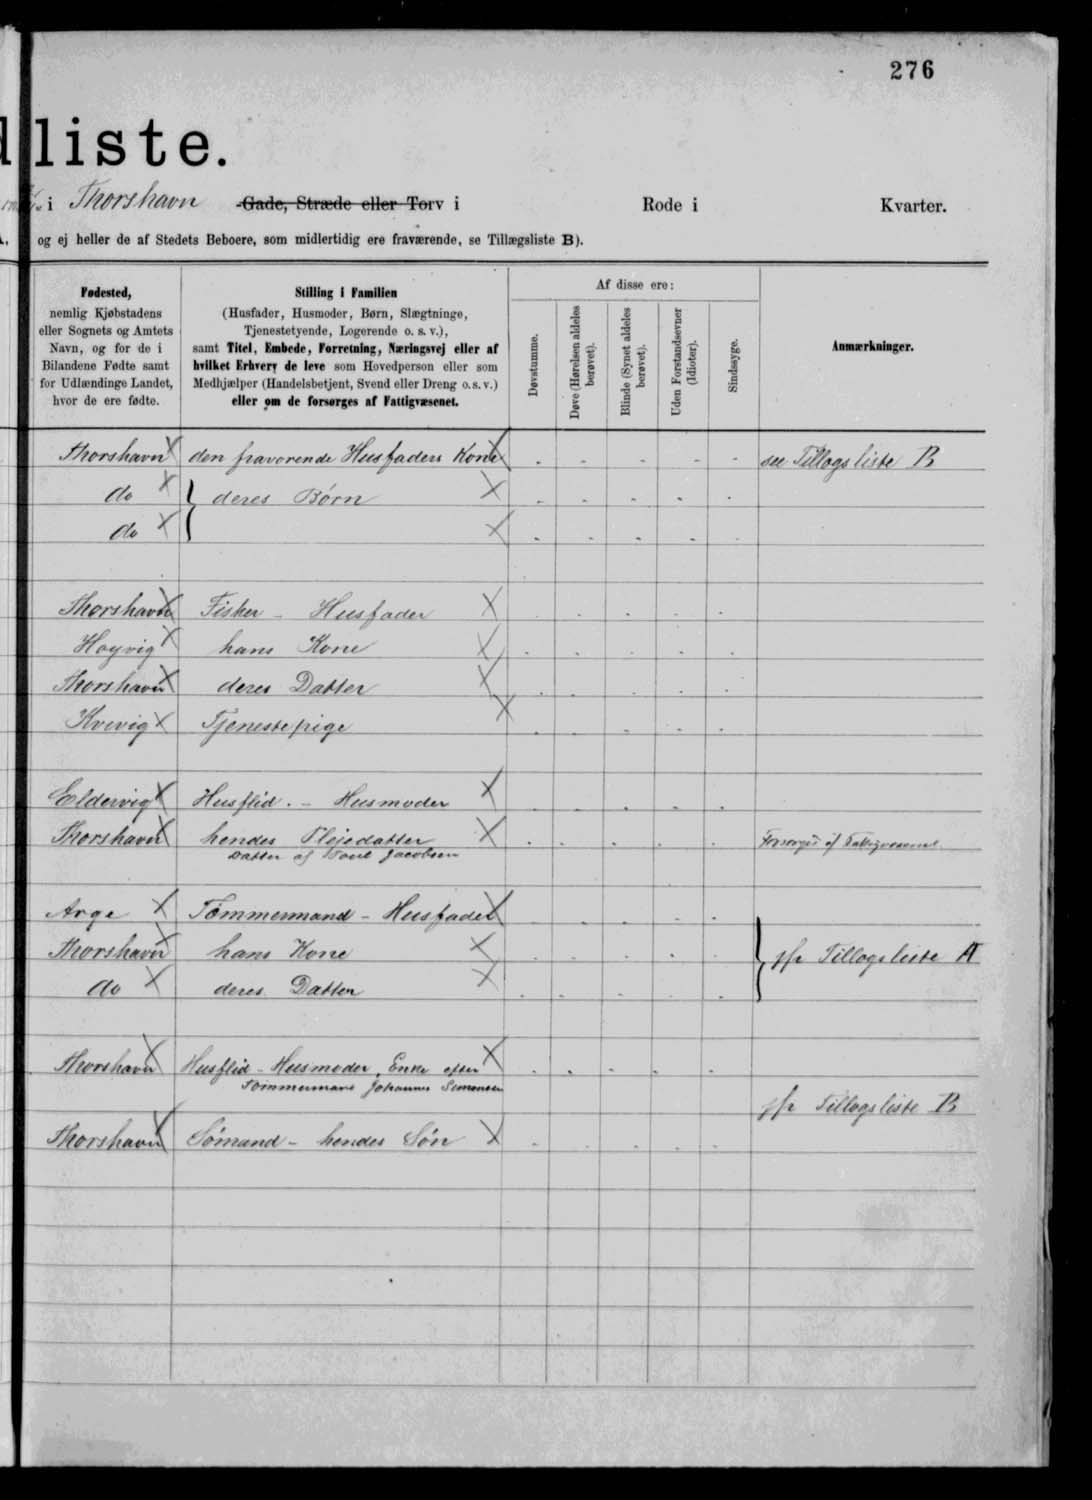 276
liste.
i Thorshavn Gade, Stræde eller Torv i Rode i Kvarter.
og ej heller de af Stedets Beboere, som midlertidig ere fraværende, se Tillægsliste B).
Fødested,
nemlig Kjøbstadens
eller Sognets og Amtets
Navn, og for de i
Bilandene Fødte samt
for Udlændinge Landet,
hvor de ere fødte.
Stilling i Familien
(Husfader, Husmoder, Børn, Slægtninge,
Tjenestetyende, Logerende o. s. v.),
samt Titel, Embede, Forretning, Næringsvej eller af
hvilket Erhverv de leve som Hovedperson eller som
Medhjælper (Handelsbetjent, Svend eller Dreng o. s. v.)
eller om de forsørges af Fattigvæsenet.
Af disse ere:
Døvstumme.
Døve (Hørelsen aldeles
berøvet).
Blinde (Synet aldeles
berøvet).
Uden Forstandsevner
(Idioter).
Sindssyge.
Anmærkninger.
Thorshavn den fraværende Husfaders Kone see Tillægsliste B
do deres Børn
do
Thorshavn Fisker - Husfader
Hoyvig hans Kone
Thorshavn deres Datter
Kvivig Tjenestepige
Eldervig Husflid. - Husmoder
Thorshavn hendes Plejedatter Forsørges af Fattigvæsenet
Datter af Poul Jacobsen
Arge Tømmermand - Husfader
Thorshavn hans Kone jfr Tillægsliste A
do deres Datter
Thorshavn Husflid - Husmoder, Enke efter
Tømmermand Johannes Simonsen
jfr Tillægsliste B
Thorshavn Sømand - hendes Søn